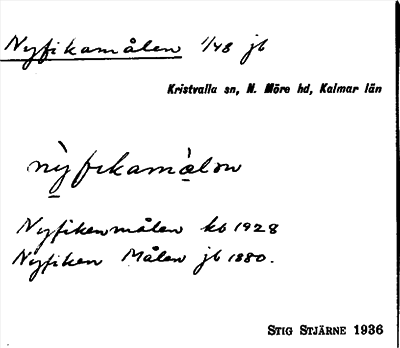 Nyfikamålen 1/48 jb
Kristvalla sn, N. Möre hd, Kalmar län
nỳfikamà̱lən
Nyfikenmålen kb 1928
Nyfiken Målen jb 1880.
STIG STJÄRNE 1936